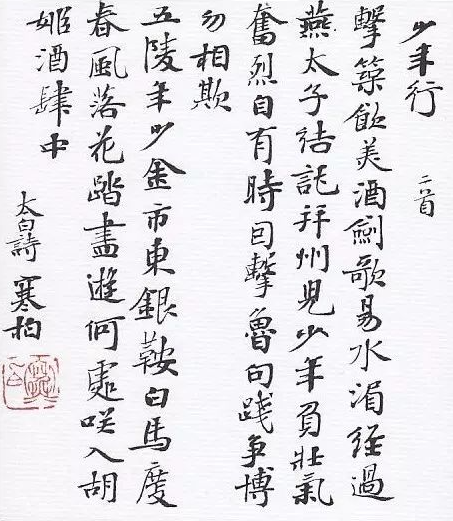 少年行 二首
擊築飲美酒劍歌易水湄經過
燕太子結託幷州兒少年負壯氣
奮烈自有時囙擊魯句踐争博
勿相欺
五陵年少金市東銀鞍白馬度
春風落花踏盡遊何處咲入胡
姬酒肆中
太白詩 寒柏